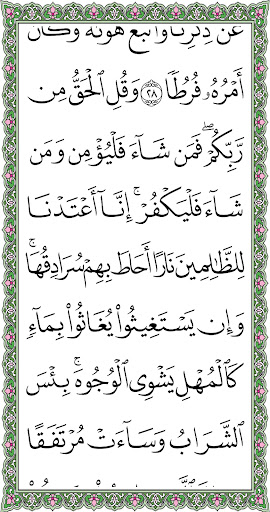 عَن ذِكْرِنَا وَٱتَّبَعَ هَوَىٰهُ وَكَانَ
أَمْرُهُۥ فُرُطًا ٢٨ وَقُلِ ٱلْحَقُّ مِن
رَّبِّكُمْ ۖ فَمَن شَآءَ فَلْيُؤْمِن وَمَن
شَآءَ فَلْيَكْفُرْ ۚ إِنَّآ أَعْتَدْنَا
لِلظَّٰلِمِينَ نَارًا أَحَاطَ بِهِمْ سُرَادِقُهَا ۚ
وَإِن يَسْتَغِيثُوا۟ يُغَاثُوا۟ بِمَآءٍ
كَٱلْمُهْلِ يَشْوِى ٱلْوُجُوهَ ۚ بِئْسَ
ٱلشَّرَابُ وَسَآءَتْ مُرْتَفَقًا